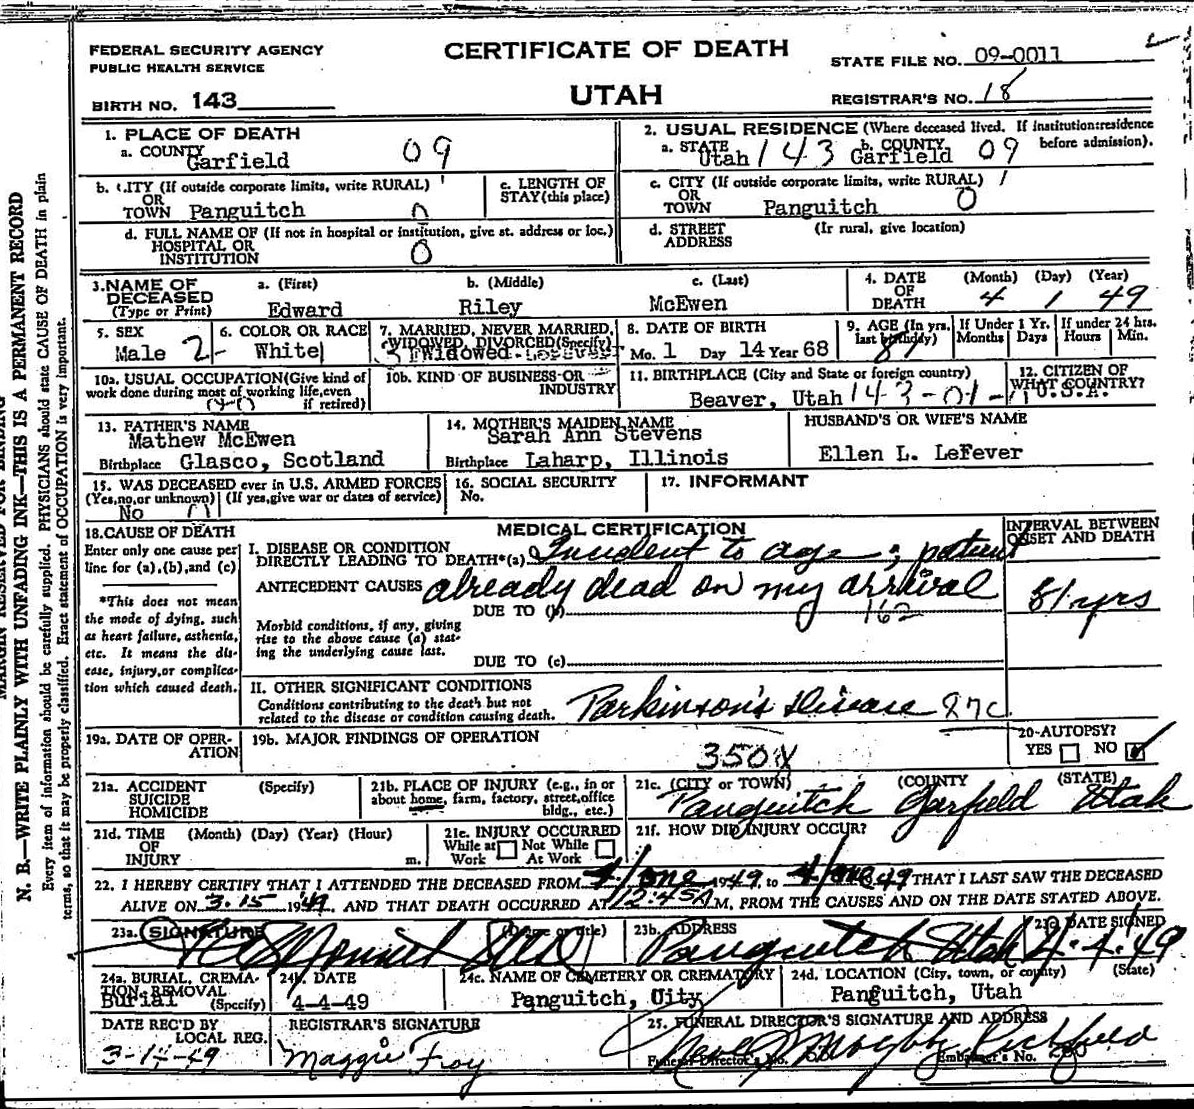 FEDERAL SECURITY AGENCY
PUBLIC HEALTH SERVICE
BIRTH NO. 143
CERTIFICATE OF DEATH
UTAH
STATE FILE NO. 09-0011
REGISTRAR'S NO. 18
1. PLACE OF DEATH
a. COUNTY Garfield 09
b. CITY (If outside corporate limits, write RURAL)
OR TOWN Panguitch 0
c. LENGTH OF STAY (this place)
d. FULL NAME OF (If not in hospital or institution, give st. address or loc.)
HOSPITAL OR INSTITUTION 0
2. USUAL RESIDENCE (Where deceased lived. If institution:residence before admission).
a. STATE Utah 143 b. COUNTY Garfield 09
c. CITY (If outside corporate limits, write RURAL) 1
OR TOWN Panguitch 0
d. STREET ADDRESS (If rural, give location)
3. NAME OF DECEASED (Type or Print)
a. (First) Edward
b. (Middle) Riley
c. (Last) McEwen
4. DATE OF DEATH (Month) (Day) (Year)
4 1 49
5. SEX Male 2
6. COLOR OR RACE White
7. MARRIED, NEVER MARRIED, WIDOWED, DIVORCED(Specify)
3 Widowed
8. DATE OF BIRTH
Mo. 1 Day 14 Year 68
9. AGE (In yrs. last birthday) 81
If Under 1 Yr. Months Days
If under 24 hrs. Hours Min.
10a. USUAL OCCUPATION(Give kind of work done during most of working life, even if retired)
10b. KIND OF BUSINESS OR INDUSTRY
11. BIRTHPLACE (City and State or foreign country)
Beaver, Utah 143-01-
12. CITIZEN OF WHAT COUNTRY?
U.S.A.
13. FATHER'S NAME
Mathew McEwen
Birthplace Glasco, Scotland
14. MOTHER'S MAIDEN NAME
Sarah Ann Stevens
Birthplace Laharp, Illinois
HUSBAND'S OR WIFE'S NAME
Ellen L. LeFever
15. WAS DECEASED ever in U.S. ARMED FORCES
(Yes,no,or unknown) (If yes,give war or dates of service)
No
16. SOCIAL SECURITY No.
17. INFORMANT
18. CAUSE OF DEATH
Enter only one cause per line for (a),(b),and (c)
*This does not mean the mode of dying, such as heart failure, asthenia, etc. It means the disease, injury,or complication which caused death.
MEDICAL CERTIFICATION
INTERVAL BETWEEN ONSET AND DEATH
I. DISEASE OR CONDITION
DIRECTLY LEADING TO DEATH*(a) Incident to age; patient
ANTECEDENT CAUSES already dead on my arrival
81 yrs
DUE TO (b) 162
Morbid conditions, if any, giving rise to the above cause (a) stating the underlying cause last.
DUE TO (c)
II. OTHER SIGNIFICANT CONDITIONS
Conditions contributing to the death but not related to the disease or condition causing death.
Parkinson's Disease 87c
19a. DATE OF OPERATION
19b. MAJOR FINDINGS OF OPERATION
350X
20-AUTOPSY?
YES NO
21a. ACCIDENT SUICIDE HOMICIDE (Specify)
21b. PLACE OF INJURY (e.g., in or about home, farm, factory, street,office bldg., etc.)
21c. (CITY or TOWN) (COUNTY) (STATE)
Panguitch Garfield Utah
21d. TIME OF INJURY (Month) (Day) (Year) (Hour) m.
21e. INJURY OCCURRED
While at Work Not While At Work
21f. HOW DID INJURY OCCUR?
22. I HEREBY CERTIFY THAT I ATTENDED THE DECEASED FROM 4/one 1949, to 4/one 49 THAT I LAST SAW THE DECEASED
ALIVE ON 3-15 1949, AND THAT DEATH OCCURRED AT 12:45 A M, FROM THE CAUSES AND ON THE DATE STATED ABOVE.
23a. SIGNATURE (Degree or title)
23b. ADDRESS Panguitch Utah
23c DATE SIGNED 4-4-49
24a. BURIAL, CREMATION, REMOVAL (Specify)
Burial
24b. DATE
4-4-49
24c. NAME OF CEMETERY OR CREMATORY
Panguitch, City
24d. LOCATION (City, town, or county) (State)
Panguitch, Utah
DATE REC'D BY LOCAL REG.
3-14-49
REGISTRAR'S SIGNATURE
Maggie Foy
25. FUNERAL DIRECTOR'S SIGNATURE AND ADDRESS
Richfield
Funeral Director's No. Embalmer's No.
MARGIN RESERVED FOR BINDING
N. B.—WRITE PLAINLY WITH UNFADING INK—THIS IS A PERMANENT RECORD
Every item of information should be carefully supplied. PHYSICIANS should state CAUSE OF DEATH in plain
terms, so that it may be properly classified. Exact statement of OCCUPATION is very important.